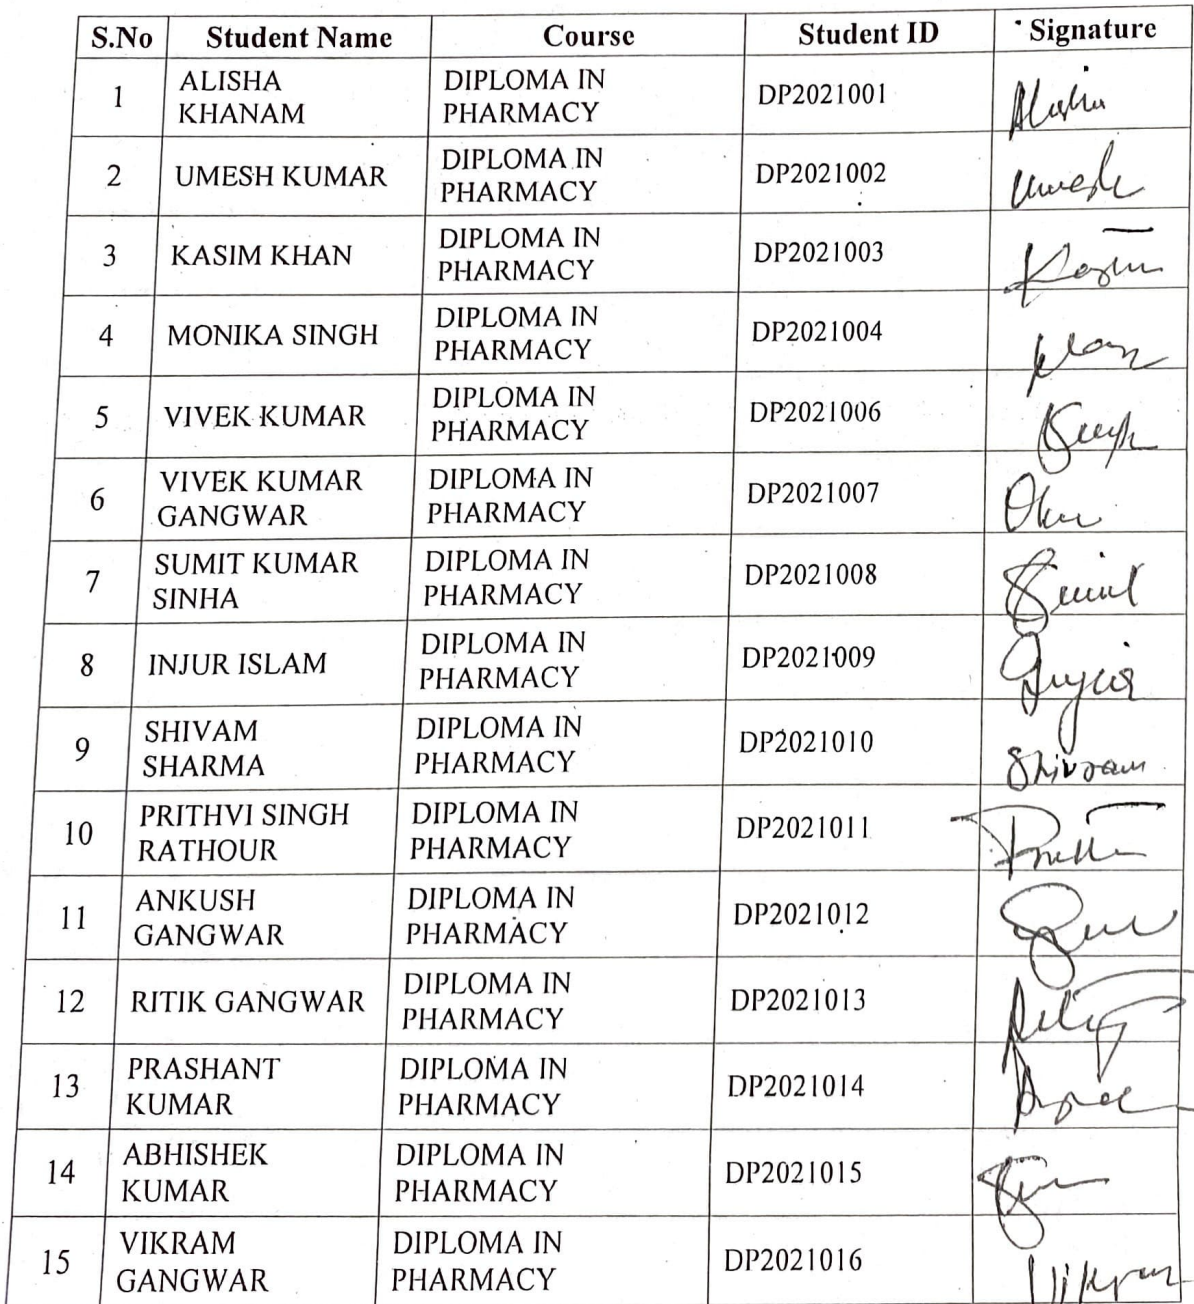 S.No Student Name Course Student ID Signature
1 ALISHA KHANAM DIPLOMA IN PHARMACY DP2021001 Alisha
2 UMESH KUMAR DIPLOMA IN PHARMACY DP2021002 Umesh
3 KASIM KHAN DIPLOMA IN PHARMACY DP2021003 Kasim
4 MONIKA SINGH DIPLOMA IN PHARMACY DP2021004
5 VIVEK KUMAR DIPLOMA IN PHARMACY DP2021006
6 VIVEK KUMAR GANGWAR DIPLOMA IN PHARMACY DP2021007
7 SUMIT KUMAR SINHA DIPLOMA IN PHARMACY DP2021008 Sumit
8 INJUR ISLAM DIPLOMA IN PHARMACY DP2021009
9 SHIVAM SHARMA DIPLOMA IN PHARMACY DP2021010 Shivam
10 PRITHVI SINGH RATHOUR DIPLOMA IN PHARMACY DP2021011
11 ANKUSH GANGWAR DIPLOMA IN PHARMACY DP2021012
12 RITIK GANGWAR DIPLOMA IN PHARMACY DP2021013
13 PRASHANT KUMAR DIPLOMA IN PHARMACY DP2021014
14 ABHISHEK KUMAR DIPLOMA IN PHARMACY DP2021015
15 VIKRAM GANGWAR DIPLOMA IN PHARMACY DP2021016 Vikram